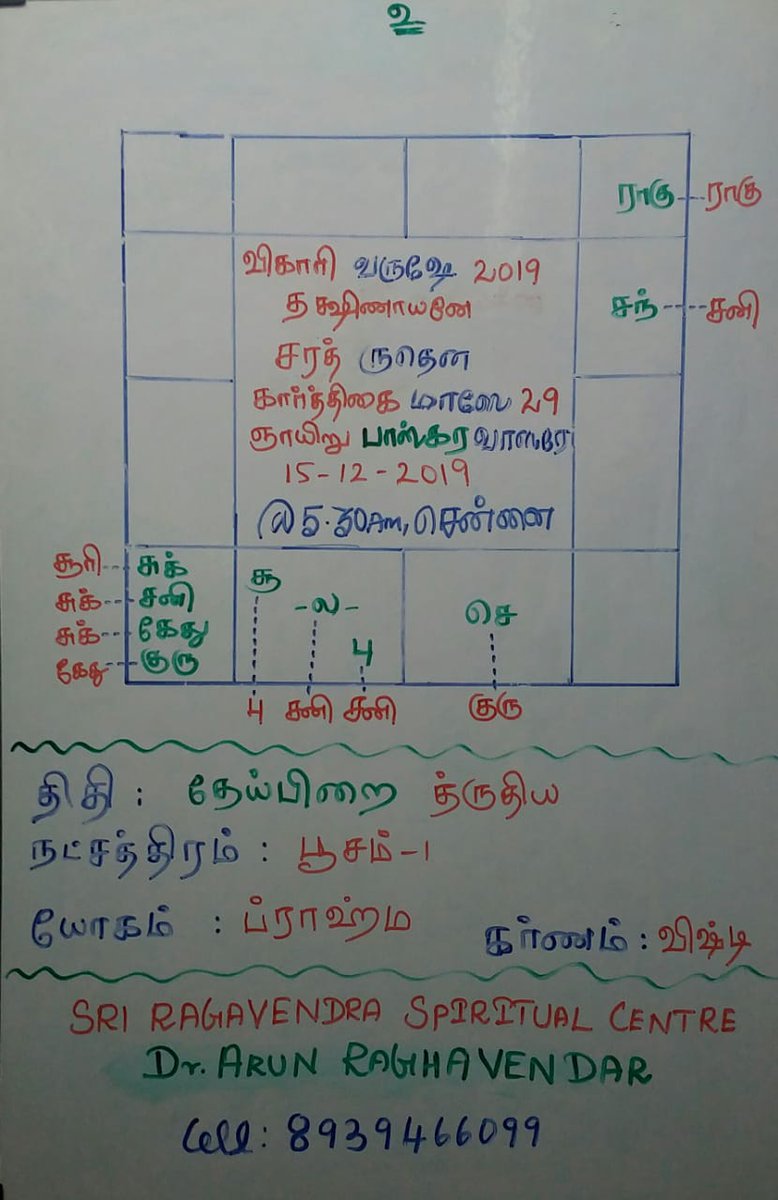 உ
ராகு--ராகு
விகாரி வருஷே 2019
தக்ஷிணாயனே
சந்----சனி
சரத் ருதெள
கார்த்திகை மாஸே 29
ஞாயிறு பாஸ்கர வாஸரே
15-12-2019
@5.30Am, சென்னை
சூரி--சுக்
சுக்--சனி
சுக்--கேது
கேது--குரு
சூ -ல- பு செ
பு சனி சனி குரு
திதி : தேய்பிறை த்ருதிய
நட்சத்திரம் : பூசம்-1
யோகம் : ப்ராஹ்ம கர்ணம் : விஷ்டி
SRI RAGAVENDRA SPIRITUAL CENTRE
Dr. ARUN RAGHAVENDAR
Cell: 8939466099